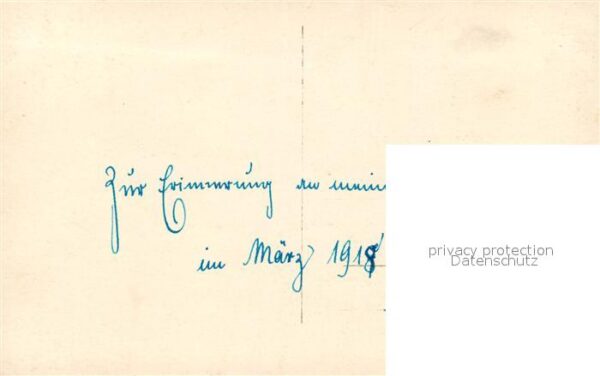 Zur Erinnerung an mein
im März 1918
privacy protection
Datenschutz